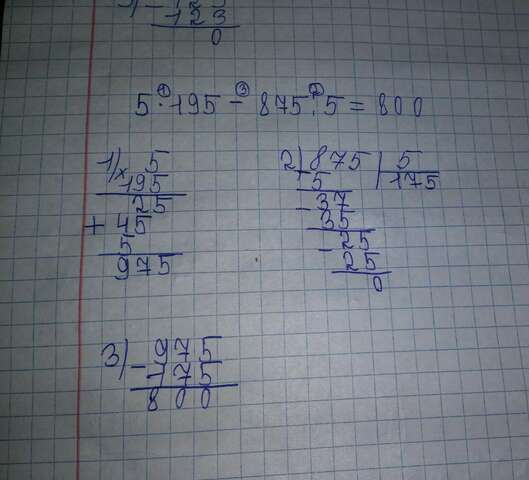 123
0
5 · 195 - 875 : 5 = 800
1) × 5
195
25
+ 45
5
975
2) 875 | 5
- 5 175
- 37
35
- 25
25
0
3) - 975
175
800